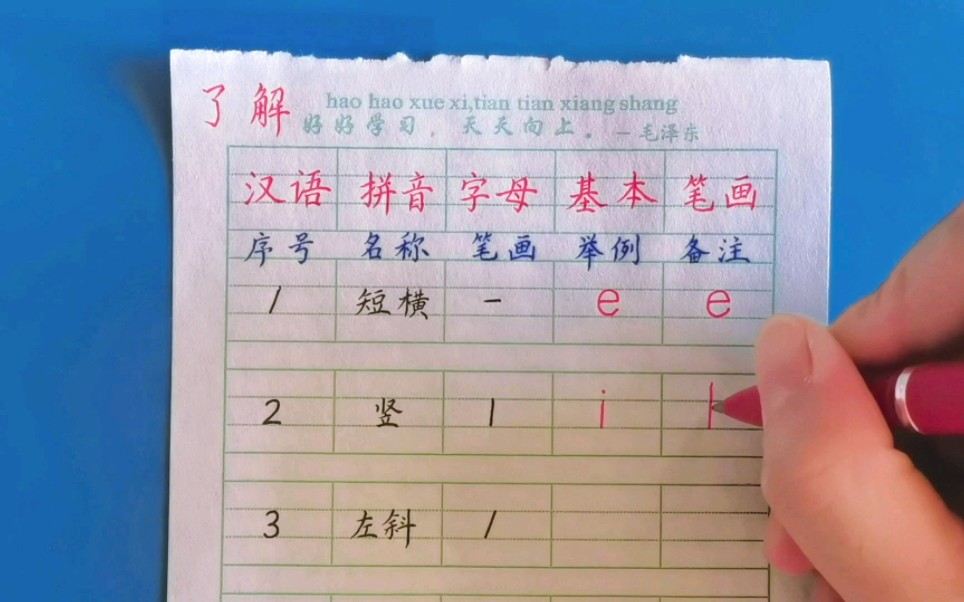 了解
hao hao xue xi,tian tian xiang shang
好好学习，天天向上。—毛泽东
汉语 拼音 字母 基本 笔画
序号 名称 笔画 举例 备注
1 短横 一 e e
2 竖 丨 i
3 左斜 /